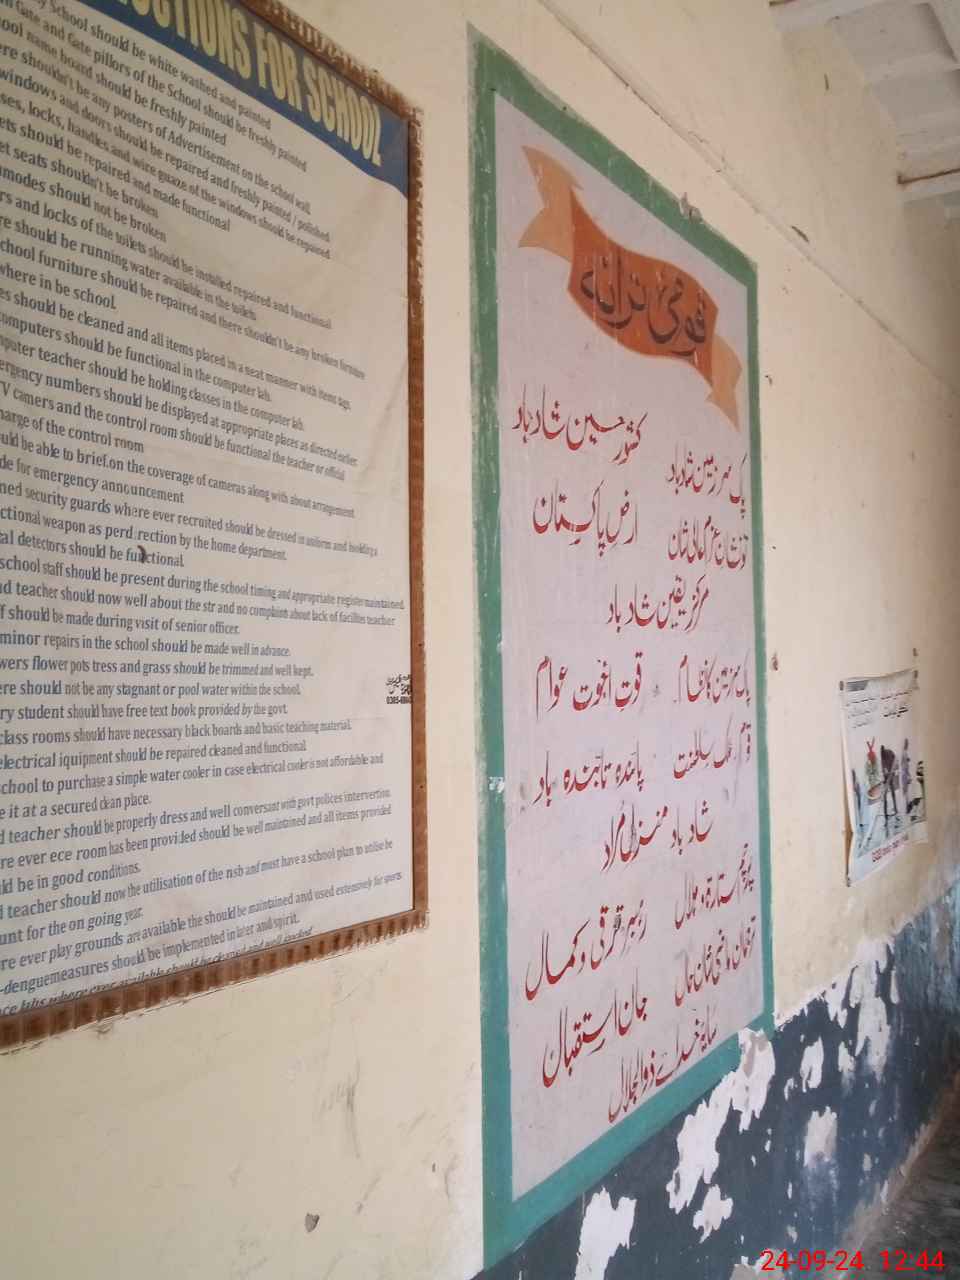 CTIONS FOR SCHOOL
School should be white washed and painted
Gate and Gate pillors of the School should be freshly painted
ool name board should be freshly painted
ere shouldn't be any posters of Advertisement on the school wall.
windows and doors should be repaired and freshly painted / polished.
ses, locks, handles and wire guaze of the windows should be repaired
ets should be repaired and made functional
et seats shouldn't be broken
mmodes should not be broken
rs and locks of the toilets should be installed repaired and functional
re should be running water available in the toilets
chool furniture should be repaired and there shouldn't be any broken furniture
where in be school.
es should be cleaned and all items placed in a neat manner with items tags.
omputers should be functional in the computer lab.
mputer teacher should be holding classes in the computer lab.
ergency numbers should be displayed at appropriate places as directed earlier.
TV camers and the control room should be functional the teacher or official
harge of the control room
uld be able to brief.on the coverage of cameras along with about arrangement
de for emergency announcement
ned security guards where ever recruited should be dressed in uniform and hoolding a
ctional weapon as perd rection by the home department.
tal detectors should be functional.
school staff should be present during the school timing and appropriate register maintained.
nd teacher should now well about the str and no complaint about lack of facilites teacher
ff should be made during visit of senior officer.
minor repairs in the school should be made well in advance.
owers flower pots tress and grass should be trimmed and well kept.
ere should not be any stagnant or pool water within the school.
ry student should have free text book provided by the govt.
class rooms should have necessary black boards and basic teaching material.
electrical iquipment should be repaired cleaned and functional
school to purchase a simple water cooler in case electrical cooler is not affordable and
e it at a secured clean place.
d teacher should be properly dress and well conversant with govt polices intervertion
re ever ece room has been provided should be well maintained and all items provided
uld be in good conditions.
d teacher should now the utilisation of the nsb and must have a school plan to utilise be
unt for the on going year.
re ever play grounds are available the should be maintained and used extensively for sports
-denguemeasures should be implemented in later and spirit.
nce labs where ever available should be cleaned and well stocked
قومی ترانہ
پاک سرزمین شاد باد کشور حسین شاد باد
تو نشان عزم عالی شان ارض پاکستان
مرکز یقین شاد باد
پاک سرزمین کا نظام قوت اخوت عوام
قوم ملک سلطنت پائندہ تابندہ باد
شاد باد منزل مراد
پرچم ستارہ و ہلال رہبر ترقی و کمال
ترجمان ماضی شان حال جان استقبال
سایہ خدائے ذوالجلال
24-09-24 12:44